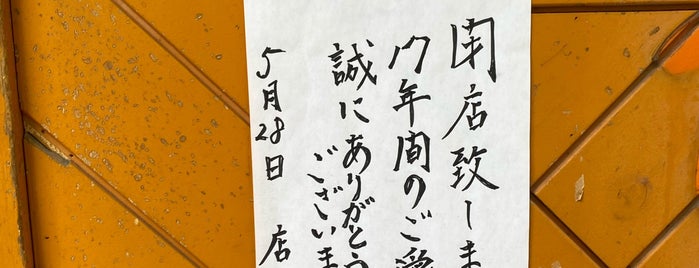 閉店致しま
17年間のご愛
誠にありがとう
ございま
5月28日 店